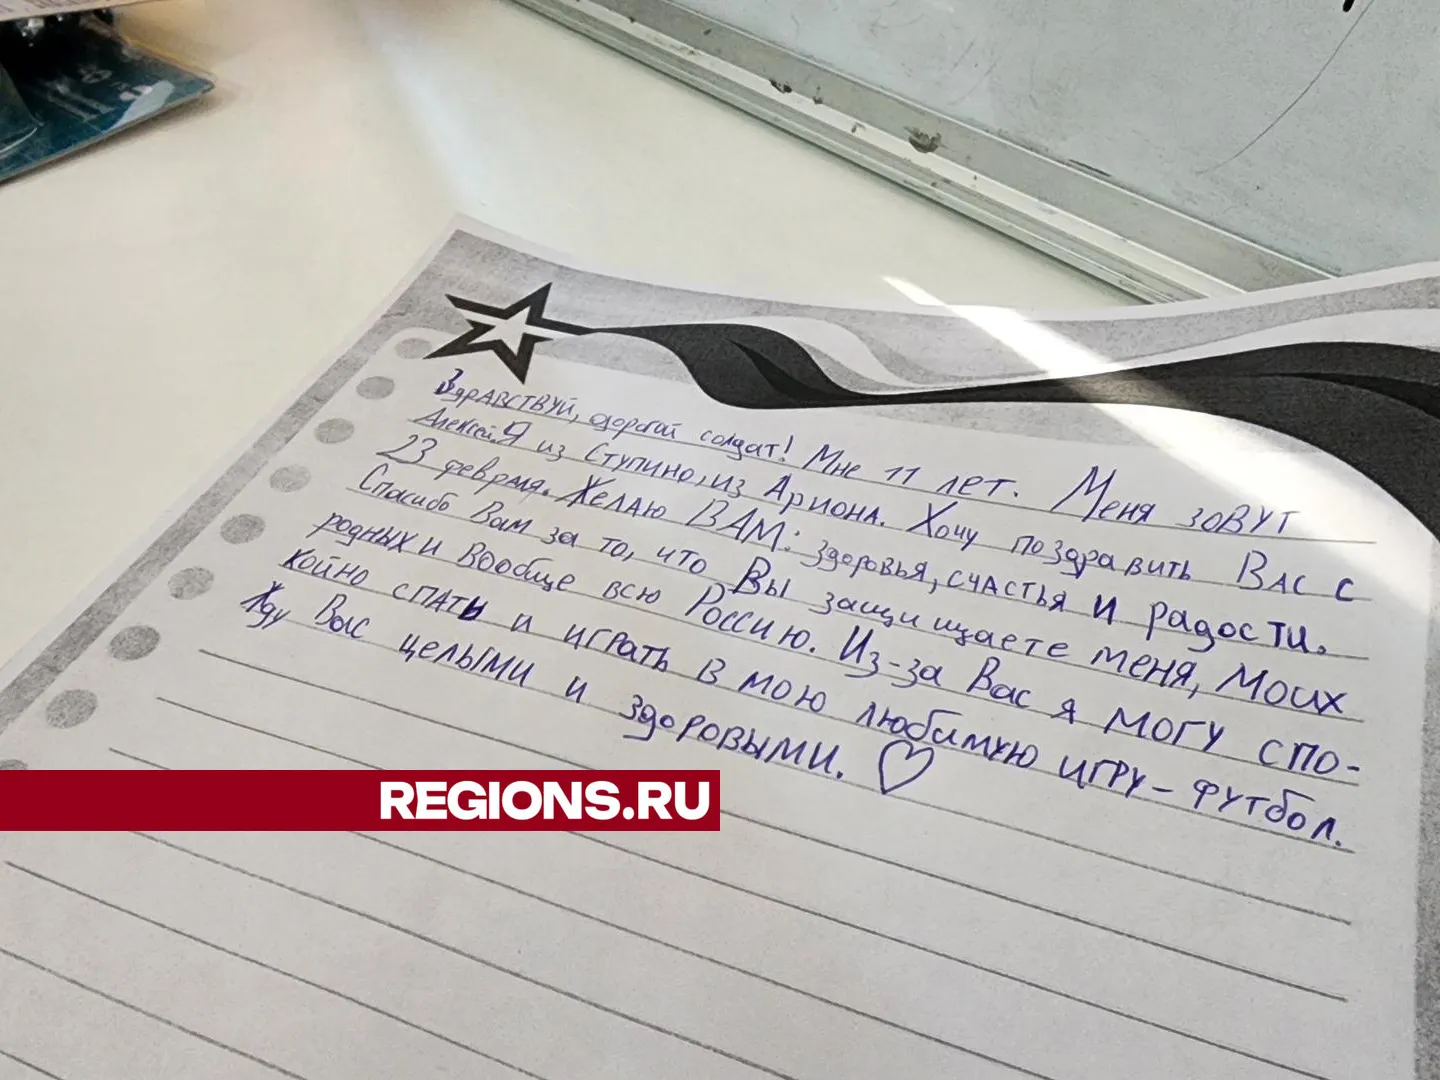 Здравствуй, дорогой солдат! Мне 11 лет. Меня зовут
Алексей. Я из Ступино, из Ариона. Хочу поздравить Вас с
23 февраля. Желаю ВАМ: здоровья, счастья и радости.
Спасибо Вам за то, что Вы защищаете меня, моих
родных и вообще всю Россию. Из-за Вас я могу спо-
койно спать и играть в мою любимую игру - футбол.
Жду Вас целыми и здоровыми. ♡
REGIONS.RU